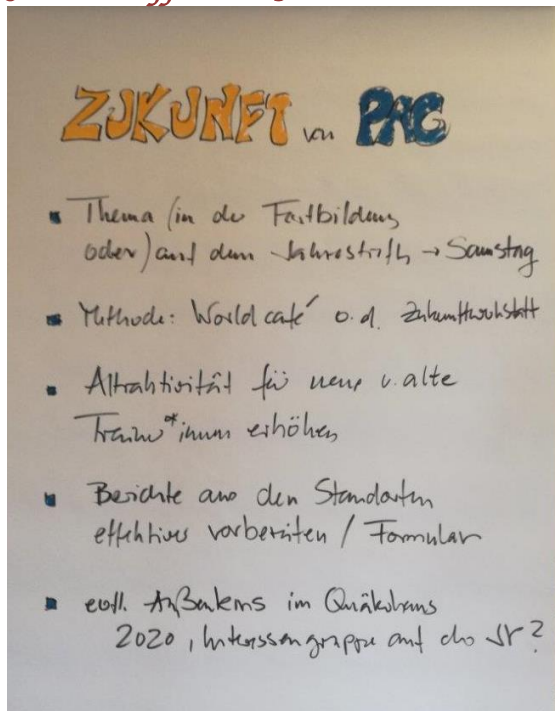 ZUKUNFT von PAG
Thema (in der Fortbildung
oder) auf dem Jahrestreff → Samstag
Methode: World café o.d. Zukunftwerkstatt
Attraktivität für neue u. alte
Trainer*innen erhöhen
Berichte aus den Standorten
effektiver vorbereiten / Formular
evtl. im Quäkerhaus
2020, Interessengruppe auf